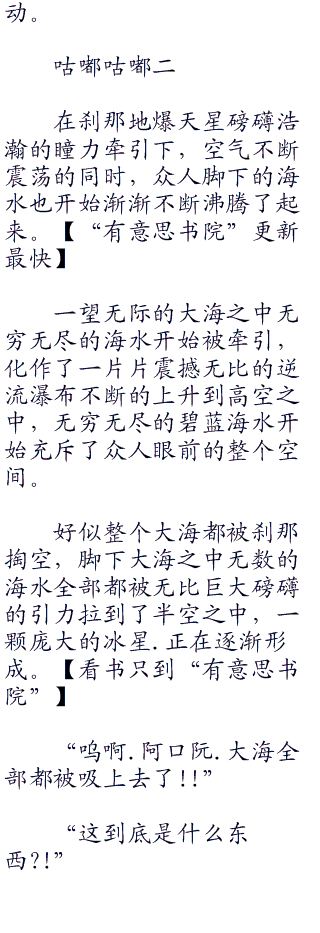 动。
咕嘟咕嘟二
在刹那地爆天星磅礴浩
瀚的瞳力牵引下，空气不断
震荡的同时，众人脚下的海
水也开始渐渐不断沸腾了起
来。【“有意思书院”更新
最快】
一望无际的大海之中无
穷无尽的海水开始被牵引，
化作了一片片震撼无比的逆
流瀑布不断的上升到高空之
中，无穷无尽的碧蓝海水开
始充斥了众人眼前的整个空
间。
好似整个大海都被刹那
掏空，脚下大海之中无数的
海水全部都被无比巨大磅礴
的引力拉到了半空之中，一
颗庞大的冰星.正在逐渐形
成。【看书只到“有意思书
院”】
“呜啊.阿口阮.大海全
部都被吸上去了!!”
“这到底是什么东
西?!”